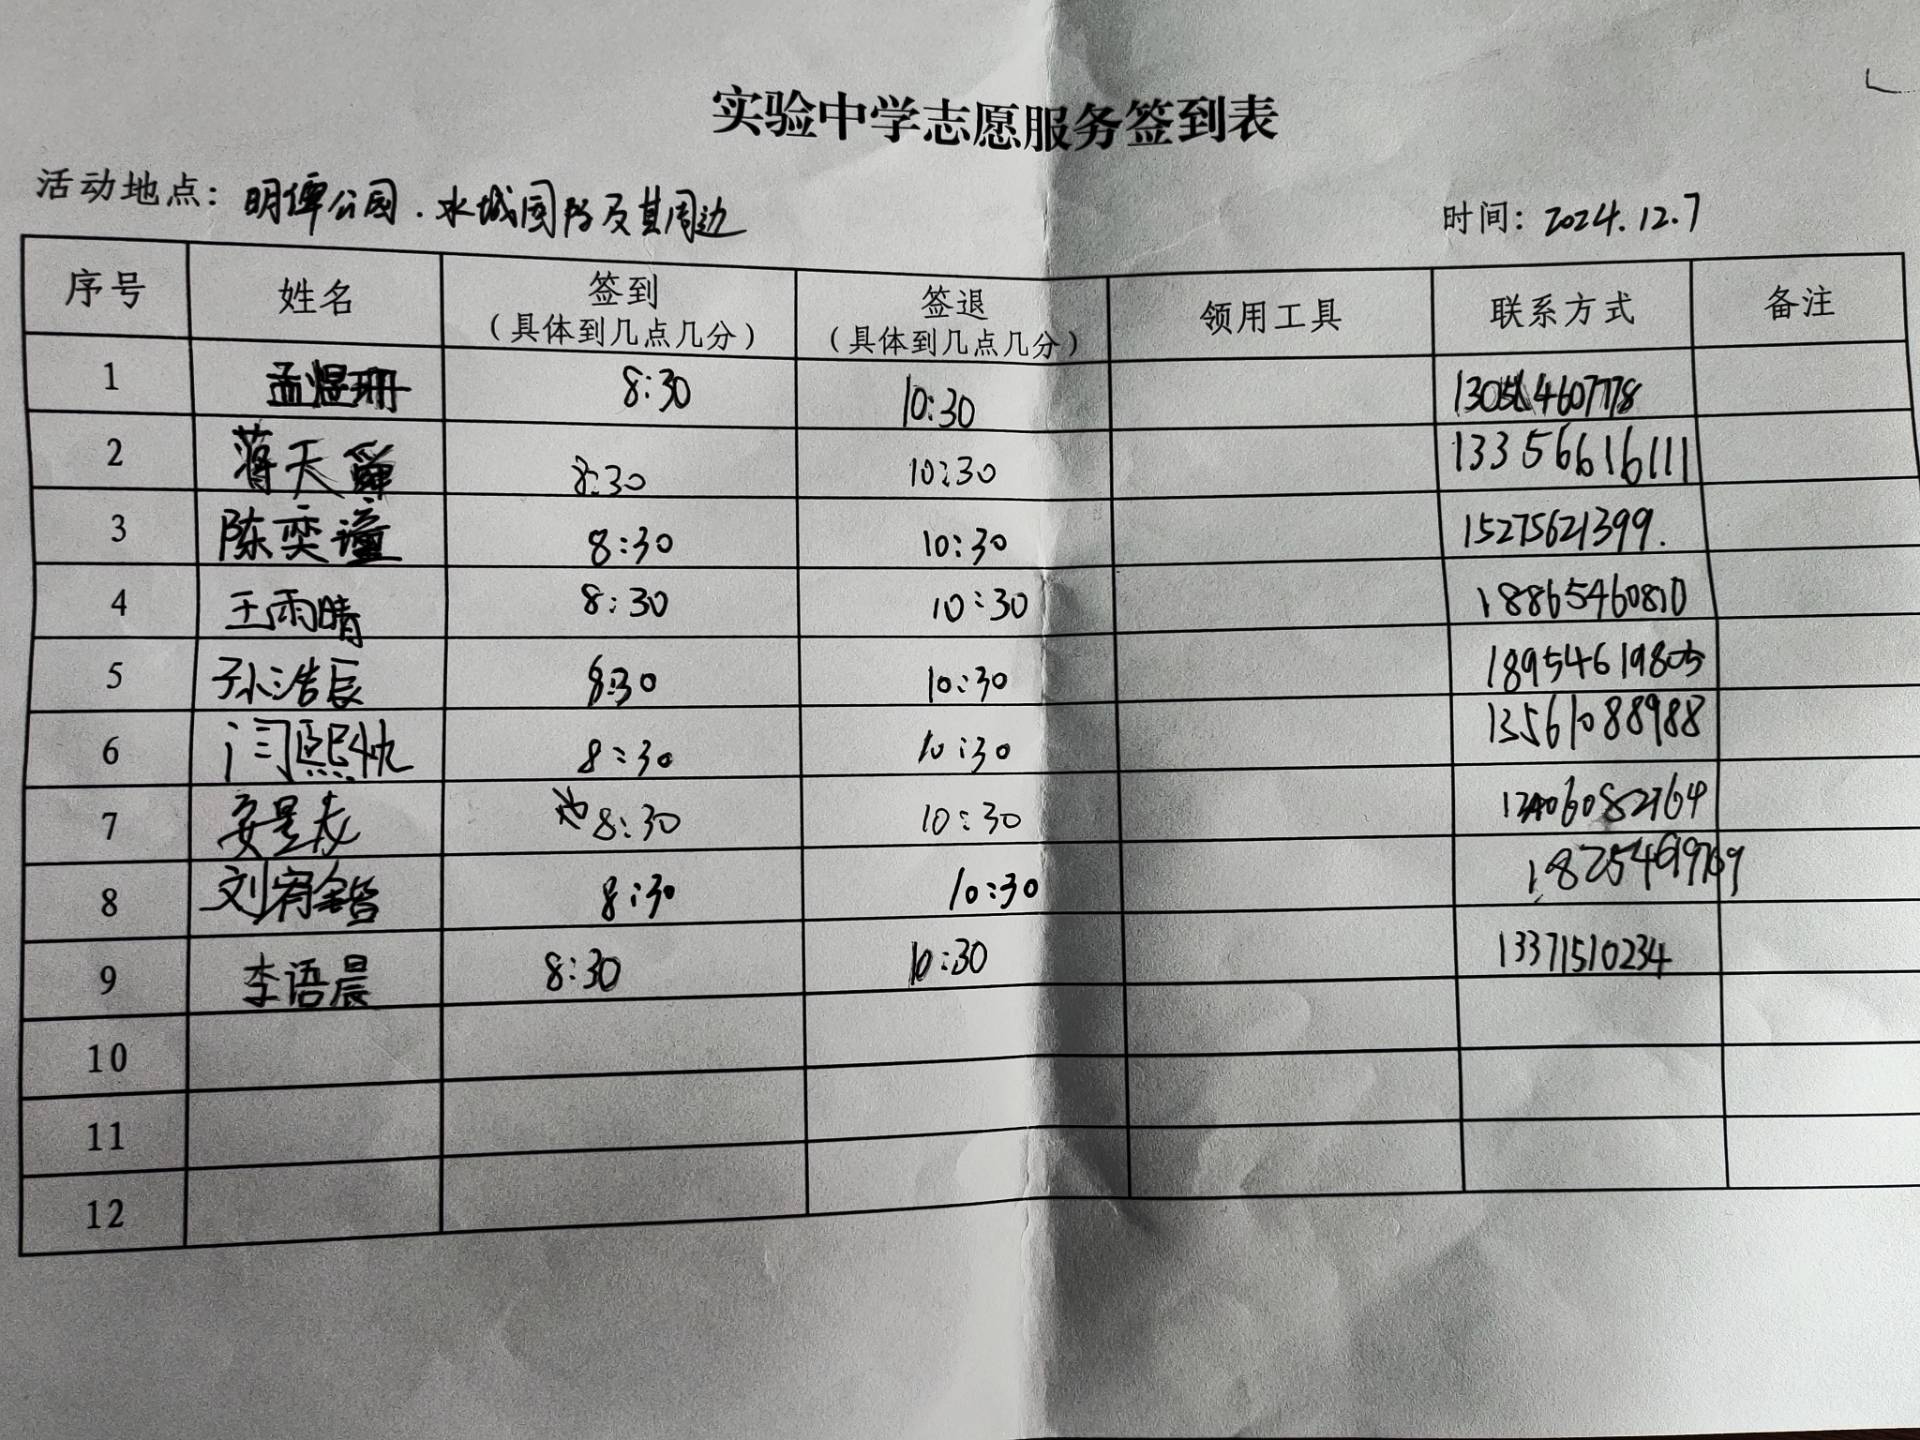 实验中学志愿服务签到表
活动地点：明潭公园．水城国际及其周边 时间：2024.12.7
序号 姓名 签到（具体到几点几分） 签退（具体到几点几分） 领用工具 联系方式 备注
1 孟煜珊 8:30 10:30
2 蒋天 8:30 10:30 13356616111
3 陈奕潼 8:30 10:30 15275621399.
4 王雨晴 8:30 10:30 18865460810
5 孙浩辰 8:30 10:30 18954619805
6 闫熙忱 8:30 10:30 13561088988
7 8:30 10:30
8 刘宥锴 8:30 10:30
9 李语晨 8:30 10:30 13371510234
10
11
12